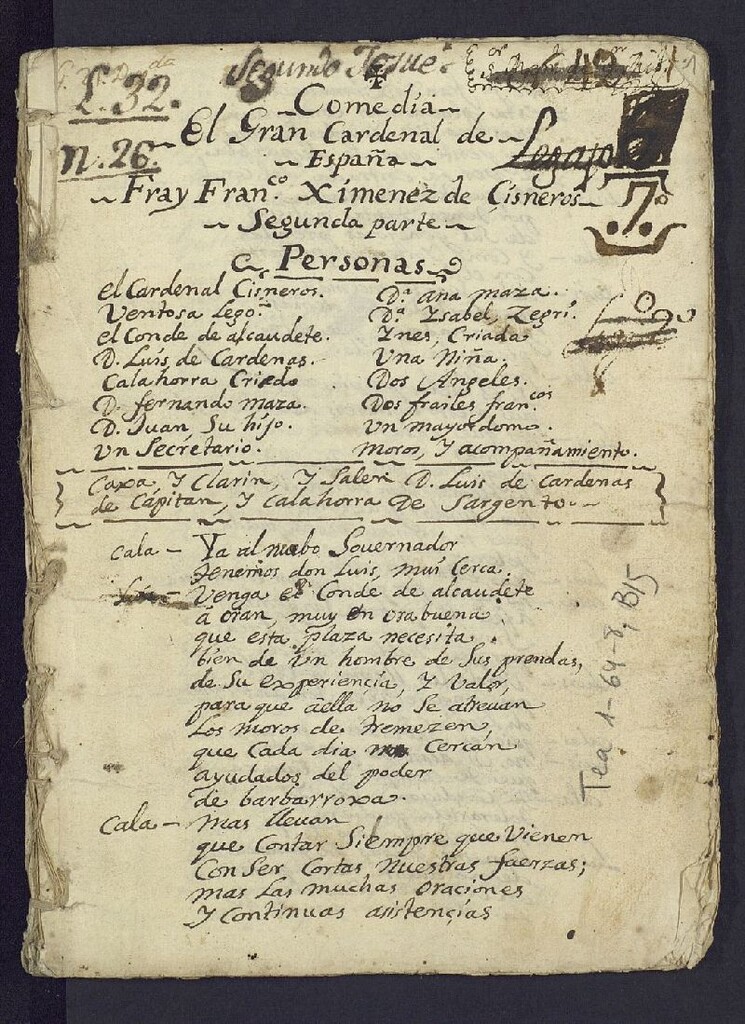 Segundo Josue
L.32.
n.26.
Comedia
El Gran Cardenal de
España
Legajo
Fray Fran.co Ximenez de Çisneros
7º
Segunda parte
Personas
el Cardenal Cisneros.
Ventosa Lego.
el Conde de alcaudete.
D. Luis de Cardenas.
Calahorra Criado
D. fernando maza.
D. Juan Su hijo.
Un Secretario.
D.ª ana maza.
D.ª Ysabel, Zegri.
Ynes, Criada
Una Niña.
Dos Angeles.
Dos frailes fran.cos
Un mayordomo.
Moros, Y acompañamiento.
Caxa, Y Clarin, Y Salen D. Luis de Cardenas
de Capitan, Y Calahorra De Sargento
Cala - Ya al nuebo Governador
tenemos don Luis, mui Cerca.
Luis - Venga el Conde de alcaudete
à oran, muy en ora buena,
que esta plaza necesita
bien de Un hombre de Sus prendas,
de Su experiencia, Y Valor,
para que àella no Se atrevan
Los moros de Tremezen,
que Cada dia Cercan
ayudados del poder
de barbarroxa.
Cala - Mas llevan
que Contar Siempre que Vienen
Con Ser Cortas Nuestras fuerzas;
mas Las muchas oraciones
Y Continuas asistençias
Tea 1-64-8, B15